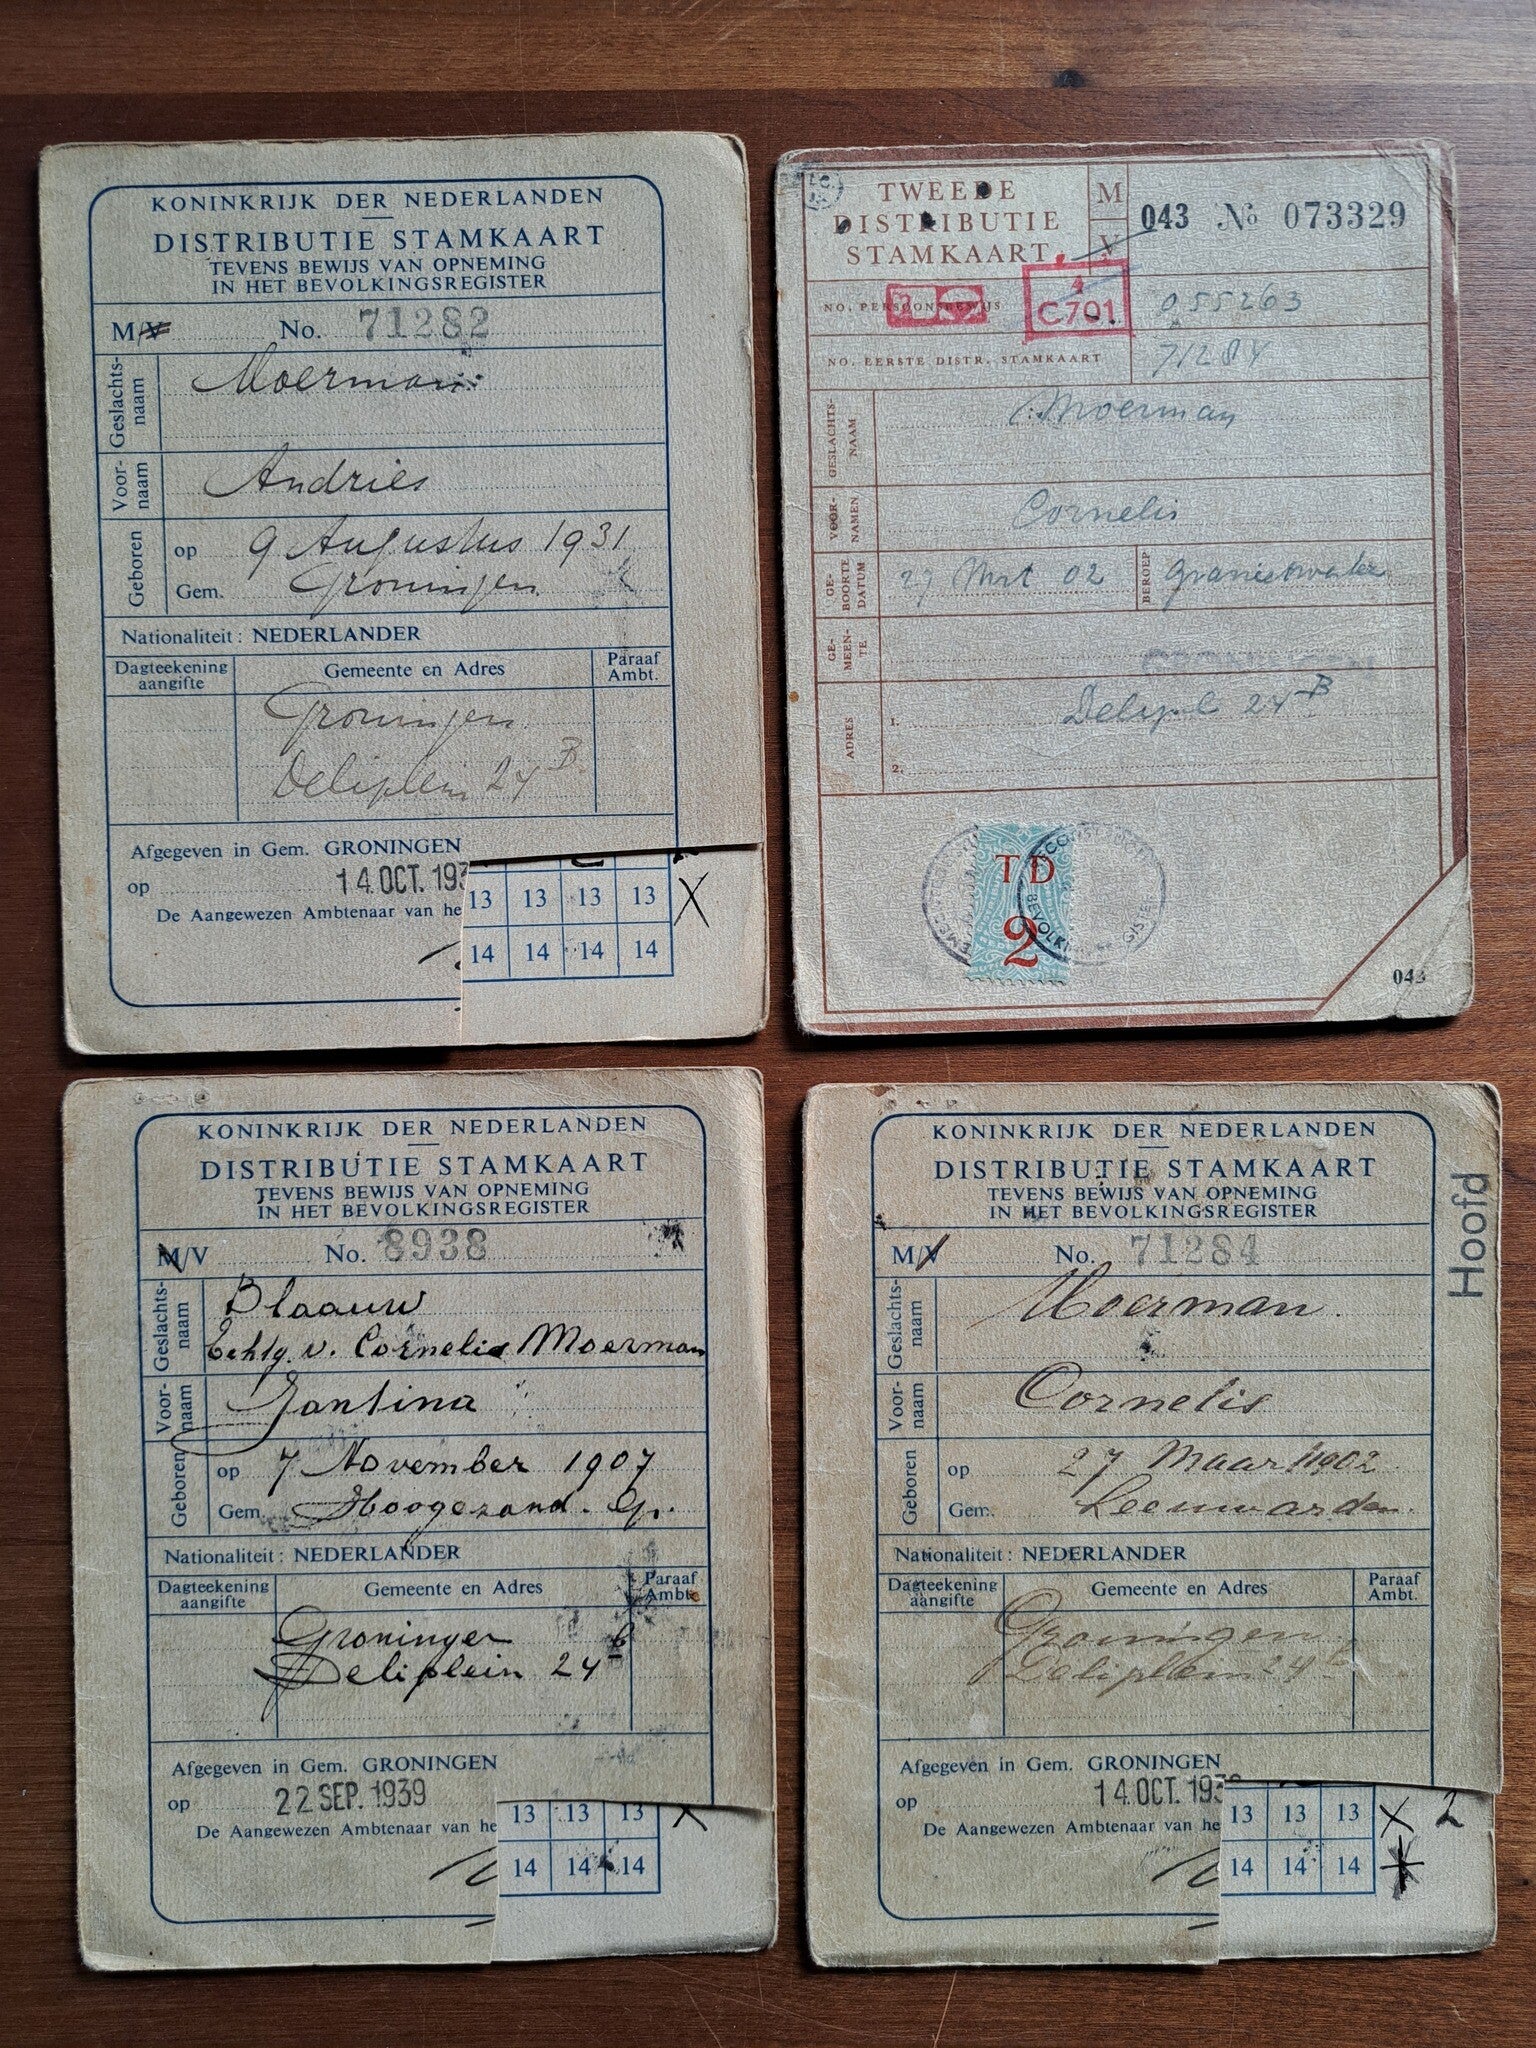 KONINKRIJK DER NEDERLANDEN
DISTRIBUTIE STAMKAART
TEVENS BEWIJS VAN OPNEMING
IN HET BEVOLKINGSREGISTER
M/V No. 71282
Geslachts-
naam
Moerman
Voor-
naam
Andries
Geboren
op 9 Augustus 1931
Gem. Groningen
Nationaliteit: NEDERLANDER
Dagteekening
aangifte
Gemeente en Adres
Paraaf
Ambt.
Groningen
Deliplein 24 B.
Afgegeven in Gem. GRONINGEN
op 14 OCT. 193
De Aangewezen Ambtenaar van he
13 13 13 13 X
14 14 14 14
TWEEDE
DISTRIBUTIE
STAMKAART
M
V
043 No 073329
NO. PERSOONSBEWIJS
4
C.701
055263
NO. EERSTE DISTR. STAMKAART
71284
GESLACHTS-
NAAM
Moerman
VOOR-
NAMEN
Cornelis
GE-
BOORTE
DATUM
27 Mrt 02
BEROEP
GE-
MEEN-
TE
ADRES
1. Delipl 24 B
2.
T D
2
043
KONINKRIJK DER NEDERLANDEN
DISTRIBUTIE STAMKAART
TEVENS BEWIJS VAN OPNEMING
IN HET BEVOLKINGSREGISTER
M/V No. 8938
Geslachts-
naam
Blaauw
Echtg. v. Cornelis Moerman
Voor-
naam
Jantina
Geboren
op 7 November 1907
Gem. Hoogezand. Gr.
Nationaliteit: NEDERLANDER
Dagteekening
aangifte
Gemeente en Adres
Paraaf
Ambt.
Groningen
Deliplein 24 b
Afgegeven in Gem. GRONINGEN
op 22 SEP. 1939
De Aangewezen Ambtenaar van he
13 13 13 X
14 14 14
KONINKRIJK DER NEDERLANDEN
DISTRIBUTIE STAMKAART
TEVENS BEWIJS VAN OPNEMING
IN HET BEVOLKINGSREGISTER
Hoofd
M/V No. 71284
Geslachts-
naam
Moerman
Voor-
naam
Cornelis
Geboren
op 27 Maart 1902
Gem. Leeuwarden.
Nationaliteit: NEDERLANDER
Dagteekening
aangifte
Gemeente en Adres
Paraaf
Ambt.
Groningen
Deliplein 24 b
Afgegeven in Gem. GRONINGEN
op 14 OCT. 193
De Aangewezen Ambtenaar van he
13 13 13 X 2
14 14 14